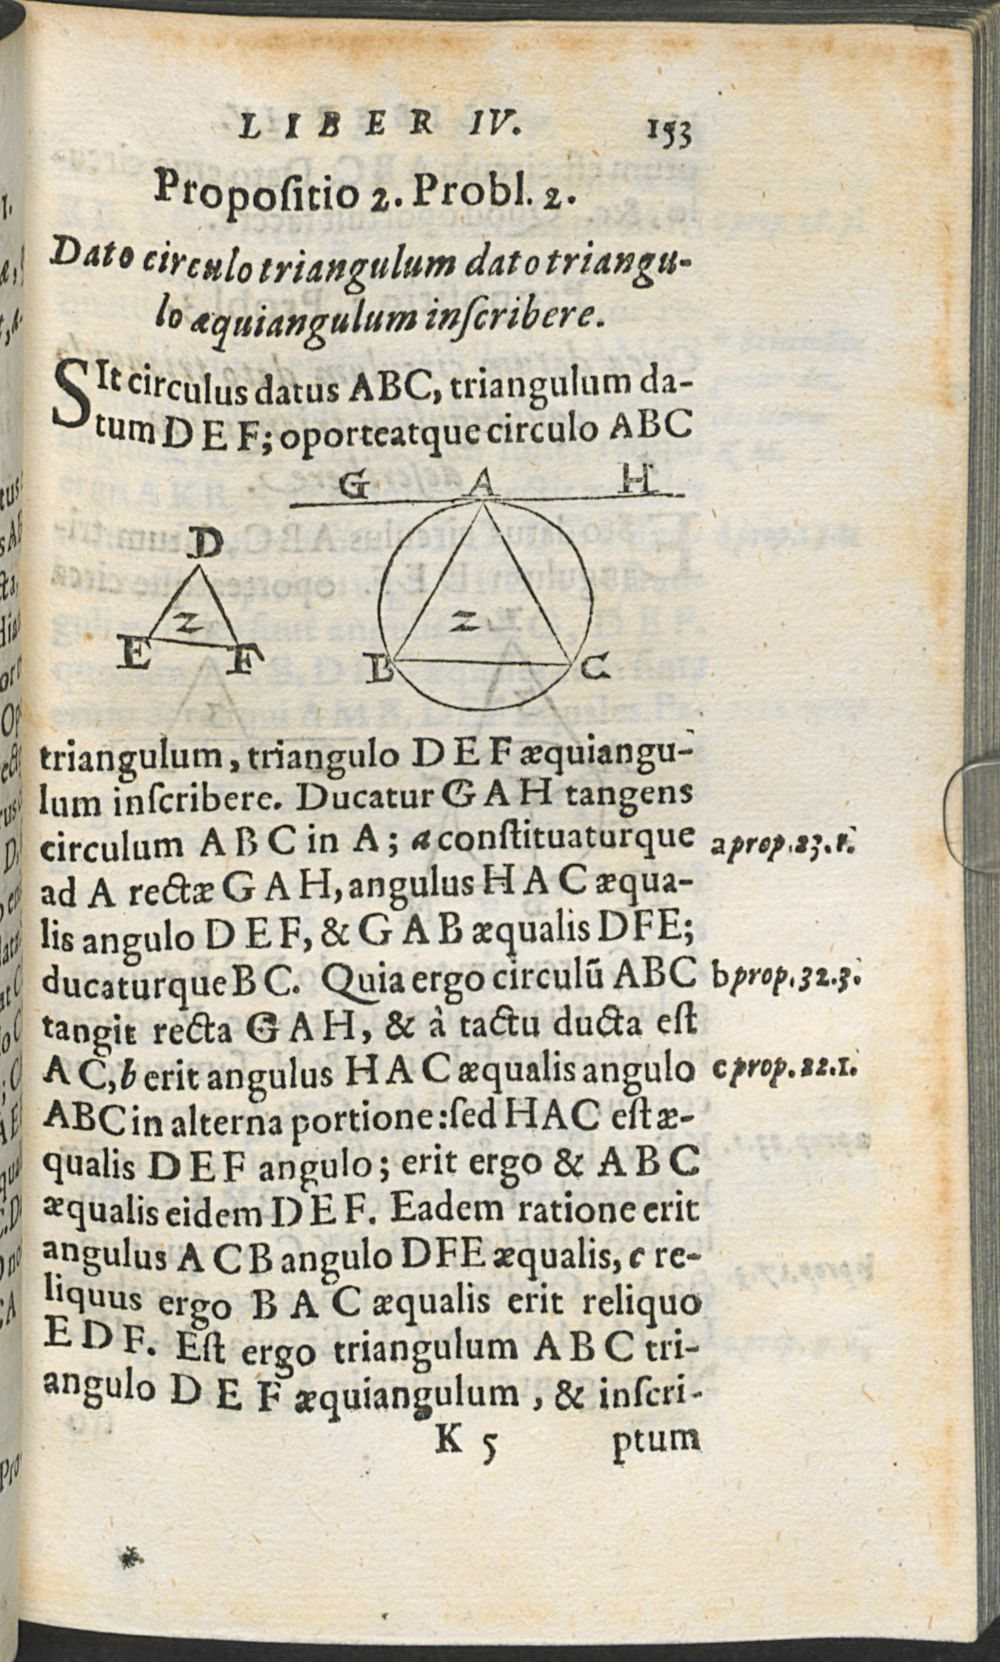 LIBER IV. 153
Propoſitio 2. Probl. 2.
Dato circulo triangulum dato triangu-
lo æquiangulum inſcribere.
SIt circulus datus ABC, triangulum da-
tum D E F; oporteatque circulo ABC
G A H
D
2 2
E F B C
triangulum, triangulo D E F æquiangu-
lum inſcribere. Ducatur G A H tangens
circulum A B C in A; a conſtituaturque
a prop. 23. 1.
ad A rectæ G A H, angulus H A C æqua-
lis angulo D E F, & G A B æqualis DFE;
ducaturque B C. Quia ergo circulũ ABC
b prop. 32. 3.
tangit recta G A H, & à tactu ducta eſt
A C, b erit angulus H A C æqualis angulo
c prop. 22. 1.
ABC in alterna portione: ſed HAC eſt æ-
qualis D E F angulo; erit ergo & A B C
æqualis eidem D E F. Eadem ratione erit
angulus A C B angulo DFE æqualis, c re-
liquus ergo B A C æqualis erit reliquo
E D F. Eſt ergo triangulum A B C tri-
angulo D E F æquiangulum, & inſcri-
K 5 ptum